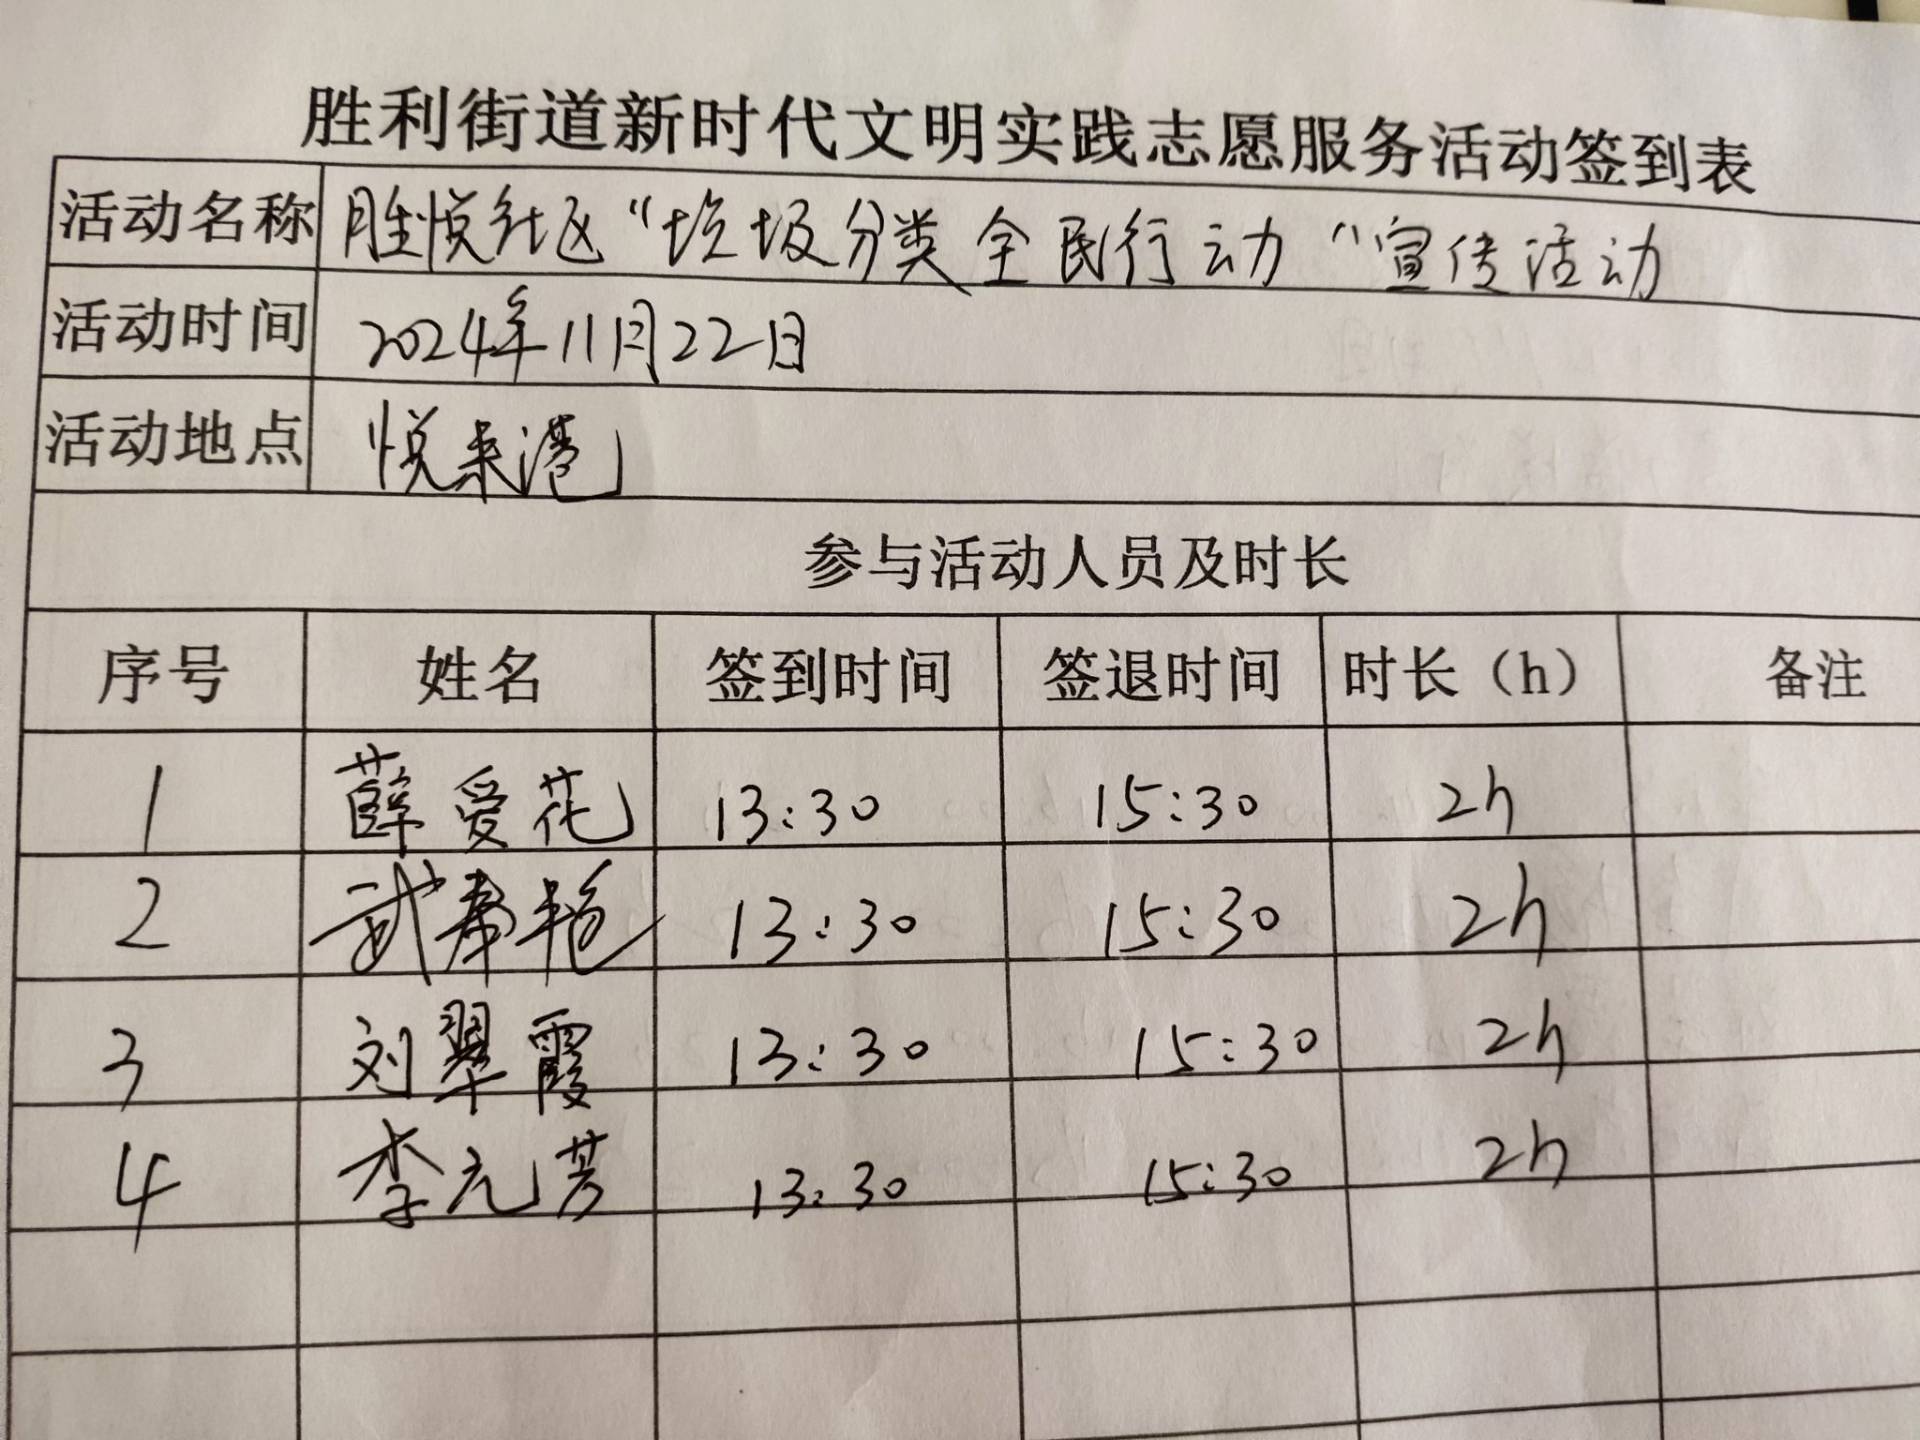 胜利街道新时代文明实践志愿服务活动签到表
活动名称 胜悦社区“垃圾分类全民行动“宣传活动
活动时间 2024年11月22日
活动地点 悦来港
参与活动人员及时长
序号 姓名 签到时间 签退时间 时长（h） 备注
1 薛爱花 13:30 15:30 2h
2 武春艳 13:30 15:30 2h
3 刘翠霞 13:30 15:30 2h
4 李元芳 13:30 15:30 2h